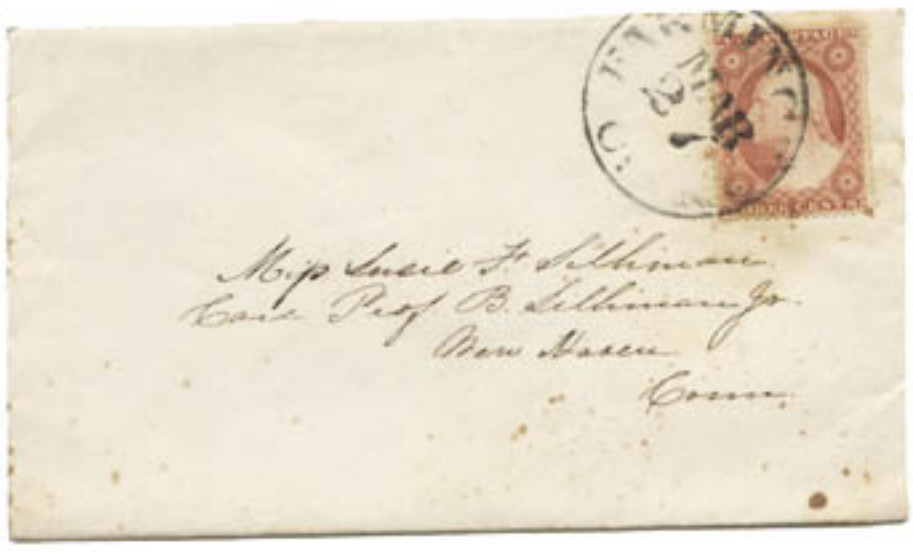 FARMING
MAR
27
THREE CENTS
Miss Susie F. Silliman
Care Prof B. Silliman Jr.
New Haven
Conn.